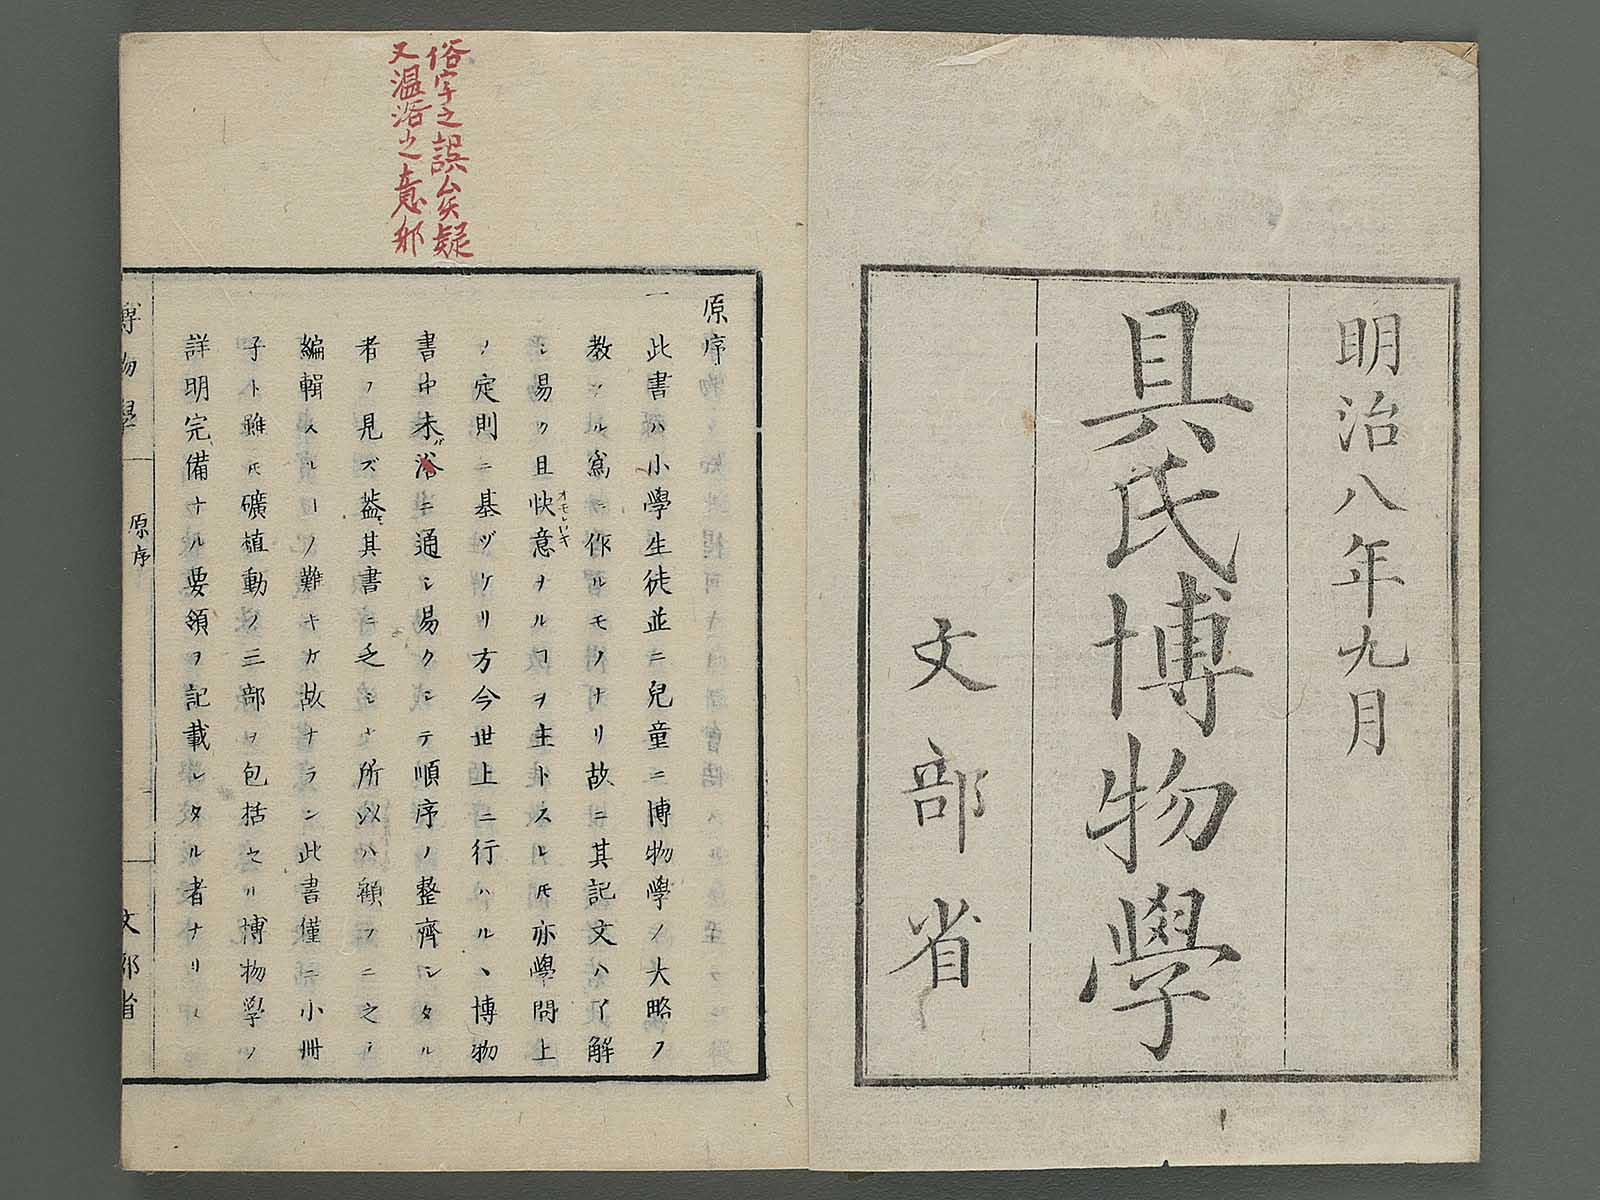 明治八年九月
具氏博物學
文部省
俗字之誤矣疑
又温浴之意邪
原序
一此書ハ小學生徒並ニ兒童ニ博物學ノ大略ヲ
教フル爲ニ作ルモノナリ故ニ其記文ハ了解
シ易ク且快意オモシロキヲナルヿヲ主トスレ𪜈亦學問上
ノ定則ニ基ヅケリ方今世上ニ行ハルヽ博物
書中未ダ浴ニ通シ易クシテ順序ノ整齊シタル
者ヲ見ズ葢其書ニ乏シキ所以ハ顧フニ之ヲ
編輯スルヿノ難キガ故ナラン此書僅ニ小冊
子ト雖𪜈礦植動ノ三部ヲ包括セル博物學ノ
詳明完備ナル要領ヲ記載シタル者ナリ
博物學
原序
文部省